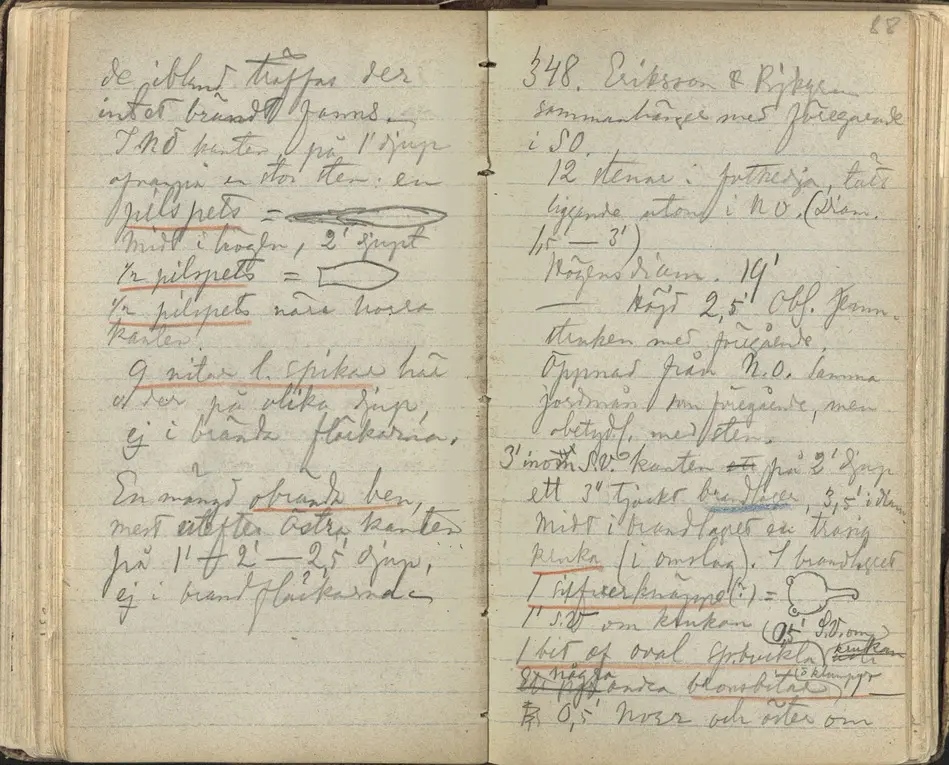 de ibland träffas der
intet brändt fanns.
I NO kanten på 1' djup
en stor sten: en
pilspets =
Midt i högen, 2' djupt
1/2 pilspets =
1/2 pilspets nära norra
kanten.
9 nitar l. spikar här
o der på olika djup,
ej i brända fläckarna.
En mängd obrända ben,
mest utefter östra kanten
på 1' - 2' - 2,5' djup,
ej i brandfläckarna
88
348. Eriksson &
sammanhänger med föregående
i SO.
12 stenar i fotkedja, tätt
liggande utom i N O. (Diam.
1,5' - 3')
Högens diam. 19'
— Höjd 2,5' Obs. Jemn-
struken med föregående.
Öppnad från N.O. samma
jordmån som föregående, men
obetydl. med sten.
3' inom S.V. kanten ett på 2' djup
ett 3" tjockt brandlager, 3,5' i diam
Midt i brandlagret en trasig
kruka (i omslag). I brandlagret
1 (?) =
1' S.V om krukan (0,5' S.V. om
krukan
1 bit af oval
några andra bronsbitar (o klumpar
0,5' norr och öster om